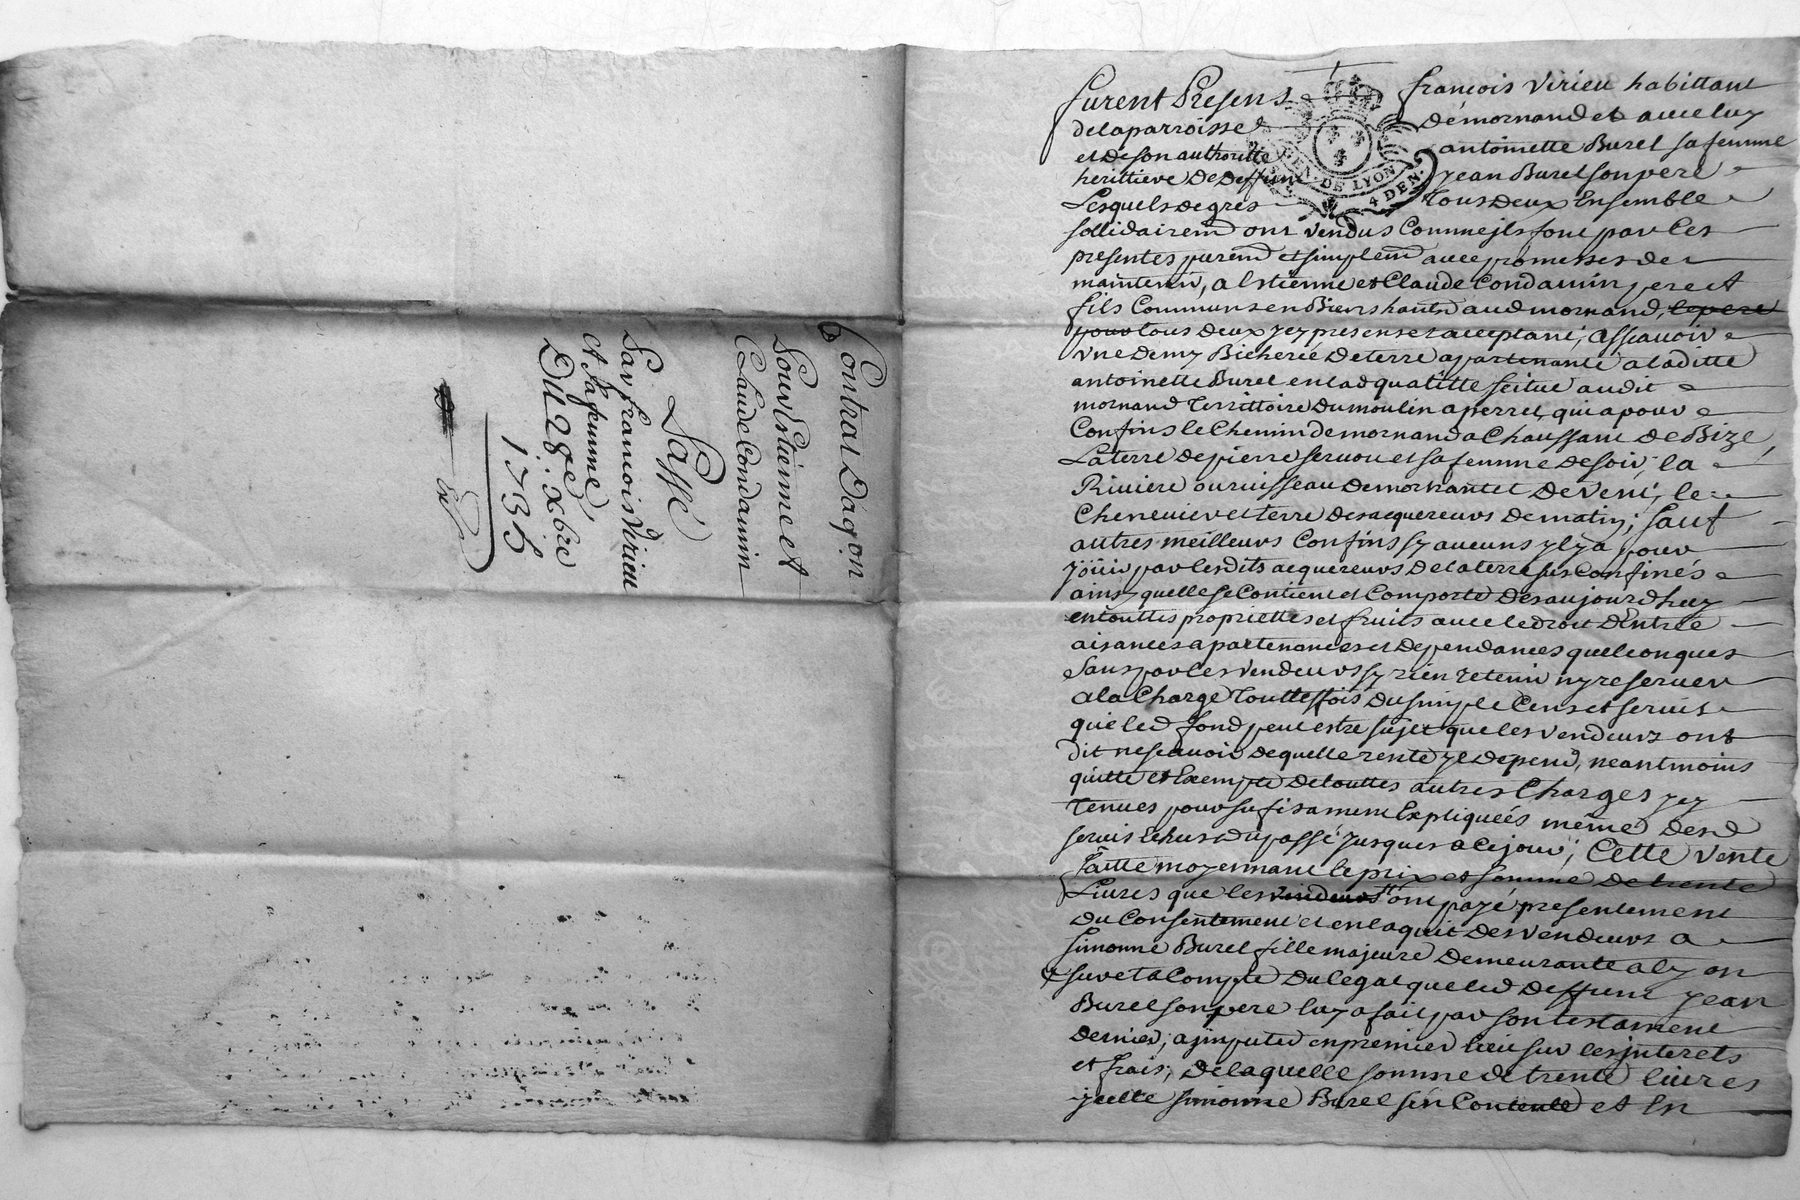 Contrat Daq̃on
Pour Estienne et
Claude Condamin
Passé
Par francois Virieu
et sa femme
Du 28e. xbre
1735
furent Presens francois Virieu habittant
de la parroisse de mornand et avec luy
et de son authoritté antoinette Burel sa femme
herittiere de deffunt jean Burel son pere
Lesquels de gres tous deux Ensemble
sollidairemt ont vendus Comme jls font par les
presentes puremt et simplemt avec promesses de
maintenir, a Estienne et Claude Condamin pere et
fils Communs en Biens hants audmornand, le pere
pour tous deux jcy presens et acceptant, assavoir
Une demy Bicherée de terre appartenante a laditte
antoinette Burel en lad qualitté scitue audit
mornand Territtoire du moulin a perret, qui a pour
Confins le Chemin de mornand a Chaussant de Bize,
La terre de pierre servou et sa femme de soir, la
Riviere ou ruisseau de mornantet de vent, le
Chenevier et terre des acquereurs de matin; sauf
autres meilleurs Confins sy aucuns y l y a pour
joüir par lesdits acquereurs de la terre sus confinés
ainsy quelle se Contient et Comporte des aujourdhuy
en touttes propriettes et fruits avec le droit dEntrée
aisances apartenances et dependances quelconques
Sans par les vendeurs sy rien retenir ny reserver
a la Charge Touttesfois du simple Cens et servis
que led fond peut estre sujet que les vendeurs ont
dit ne scavoir de quelle rente jl depend, neantmoins
quitte et Exempte de touttes autres Charges jcy
tenues pour sufisament Expliquées même desd
servis Echus du passé jusques a Cejour; Cette vente
faitte moyennant le prix et somme de trente
Livres que les vendeurs ont payé presentement
du Consentement et en laquit des vendeurs a
Simonne Burel fille majeure demeurante a lyon
sur et a Compte du legat que led deffunt jean
Burel son pere luy a fait par son testament
dernier, a jmputer en premier lieu sur les jnterets
et frais, de laquelle somme de trente livres
jcelle simonne Burel sen Contente et En
GEN. DE LYON
4 DEN.